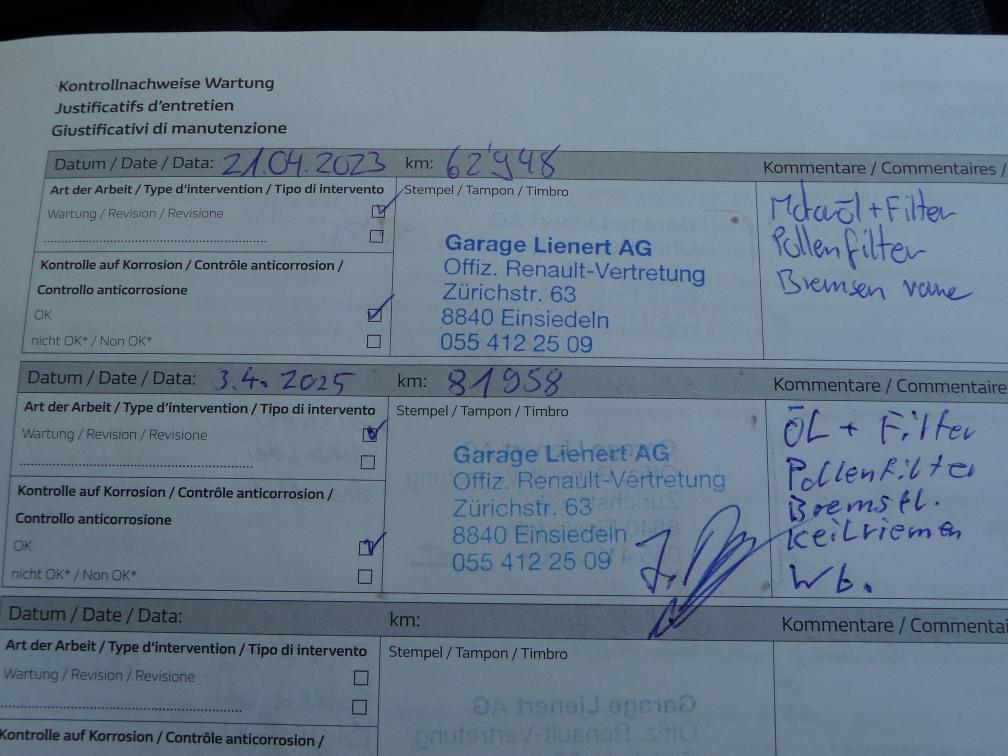 Kontrollnachweise Wartung
Justificatifs d'entretien
Giustificativi di manutenzione
Datum / Date / Data: 21.04.2023 km: 62'948 Kommentare / Commentaires /
Art der Arbeit / Type d'intervention / Tipo di intervento
Wartung / Revision / Revisione
Kontrolle auf Korrosion / Contrôle anticorrosion /
Controllo anticorrosione
OK
nicht OK* / Non OK*
Stempel / Tampon / Timbro
Garage Lienert AG
Offiz. Renault-Vertretung
Zürichstr. 63
8840 Einsiedeln
055 412 25 09
Motoröl + Filter
Pollenfilter
Bremsen vorne
Datum / Date / Data: 3.4.2025 km: 81958 Kommentare / Commentaire
Art der Arbeit / Type d'intervention / Tipo di intervento
Wartung / Revision / Revisione
Kontrolle auf Korrosion / Contrôle anticorrosion /
Controllo anticorrosione
OK
nicht OK* / Non OK*
Stempel / Tampon / Timbro
Garage Lienert AG
Offiz. Renault-Vertretung
Zürichstr. 63
8840 Einsiedeln
055 412 25 09
ÖL + Filter
Pollenfilter
Bremsfl.
Keilriemen
Wb.
Datum / Date / Data: km: Kommentare / Commentai
Art der Arbeit / Type d'intervention / Tipo di intervento
Wartung / Revision / Revisione
Kontrolle auf Korrosion / Contrôle anticorrosion /
Stempel / Tampon / Timbro